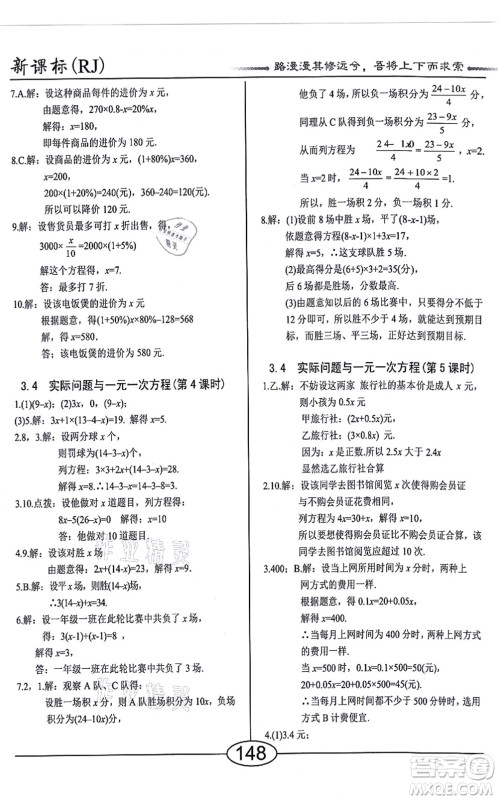 新课标(RJ)
路漫漫其修远兮，吾将上下而求索
7.A.解：设这种商品每件的进价为 x 元，
由题意得：270×0.8-x=20%x，
解得：x=180，
即每件商品的进价为 180 元。
8.C.解：设商品的进价为 x 元，(1+80%)x=360，
x=200，
200×(1+20%)=240(元)，360-240=120(元)．
所以可以降价 120 元．
9.解：设售货员最多可打 x 折出售，得：
3000×x/10=2000×(1+5%)
解得：x=7．
答：最多打 7 折．
10.解：设该电饭煲的进价为 x 元
根据题意，得：(1+50%)x×80%-128=568
解得：x=580．
答：该电饭煲的进价为 580 元．
3.4 实际问题与一元一次方程(第 4 课时)
1.(1)(9-x)；(2)3x，0，(9-x)；
(3)5.解：3x+1×(13-4-x)=19．解得：x=5．
2.8，3．解：设两分球 x 个，
则罚球为(14-3-x)个，
列方程：3×3+2x+(14-3-x)=28．
解得：x=8．∴14-3-x=3．
3.10.点拨：设他做对 x 道题目，列方程得：
8x-5(26-x)=0．解得：x=10
答：他做对了 10 道题目．
4.9.解：设该对胜 x 场
3x+(14-5-x)=27．解得：x=9．
5.B.解：设平 x 场，则胜(14-x)场，
∴3(14-x)+x=34．
6.解：设一年级一班在此轮比赛中共负了 x 场，
得：3(x-1)+(8-x)=13，
解得：x=4．
答：一年级一班在此轮比赛中共负了 4 场．
7.2，1．解：观察 A 队、C 队，
设胜一场积分为 x，则胜 10 场积分为 10x，负场
积分共为(24-10x)分，
他负了 4 场，所以负一场积分为 (24-10x)/4，
同理从 C 队，负一场积分为 (23-9x)/5，
从而列方程为 (24-10x)/4=(23-9x)/5，x=2．
当 x=2 时，(24-10x)/4=(24+10×2)/4=1．
即胜一场积 2 分，负一场积 1 分．
8.解：(1)设前 8 场中胜 x 场，
依题意得方程(8-x-1)×1+3x=17．
解得：x=5．答：这支球队胜 5 场．
(2)最高总成绩=(6+5)×3+2×1=35(分)，
后 6 场都是胜场，所以总积分最高．
(3)由题意知以后的 6 场比赛中，只要得分不低于
12 分即可，所以胜不少于 4 场，就能达到预期目
标，而胜三场、平三场，正好达到预期目标．
3.4 实际问题与一元一次方程(第 5 课时)
1.乙.解：不妨设这两家 旅行社的基本价是成人 x 元，
则小孩为 0.5x 元
甲旅行社：(2x+0.5x)元，
乙旅行社：(3×0.8x)元，
因为 x 是正数．所以 2.5x>2.4x．
显然选乙旅行社合算
2.10.解：设该同学去图书馆阅览 x 次时，购会员证
与不购会员证花费相同．
20+x=3x，解得：x=10．
所以要想使购会员证比不购会员证合算，
该同学去图书馆阅览次数应超过 10 次．
3.400；B.解：设当上网所用时间为 x 分时，两种上
网方式的费用一样．
20+0.05x=0.1x，解得：x=400；
∴当每月上网时间为 400 分，
两种上网方式的费用一样．
当 x=500 时，0.1x=0.1×500=50(元)，
20+0.05×500=45(元)，
∴当每月上网时间多于 500 分钟时，选择
B 种方式省钱．
4.(1)3.4 元；
148
作业精灵